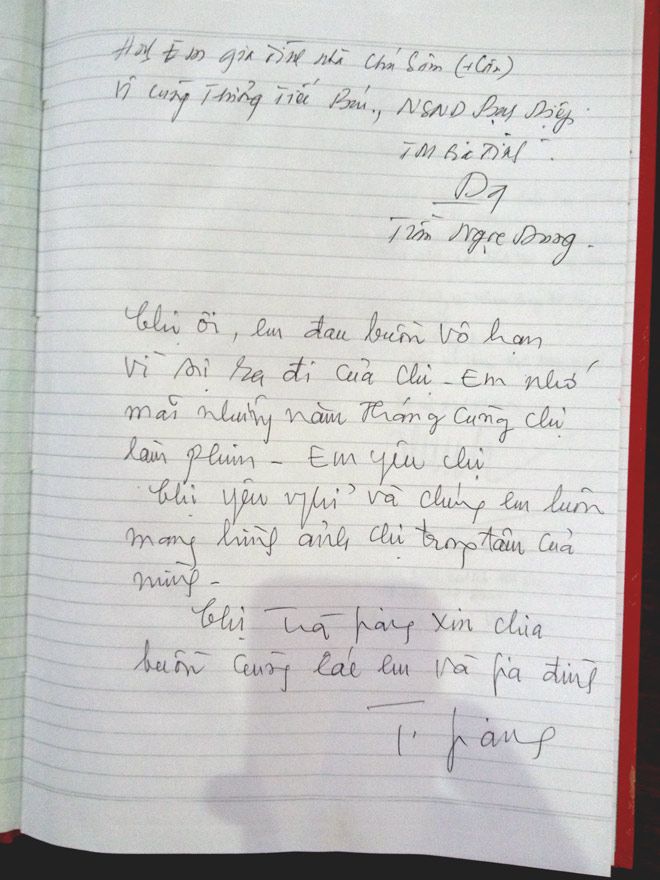 Anh Em gia đình nhà Chú Sâm
Vô cùng Thương Tiếc Bác, NSND Bạch Diệp.
TM Gia Đình
Trần Ngọc Dung.
Chị ơi, em đau buồn vô hạn
vì sự ra đi của chị - Em nhớ
mãi những năm tháng cùng chị
làm phim - Em yêu chị
Chị yên nghỉ và chúng em luôn
mang hình ảnh chị trong tâm của
mình -
Chị Trà Giang xin chia
buồn cùng các em và gia đình
T. Giang